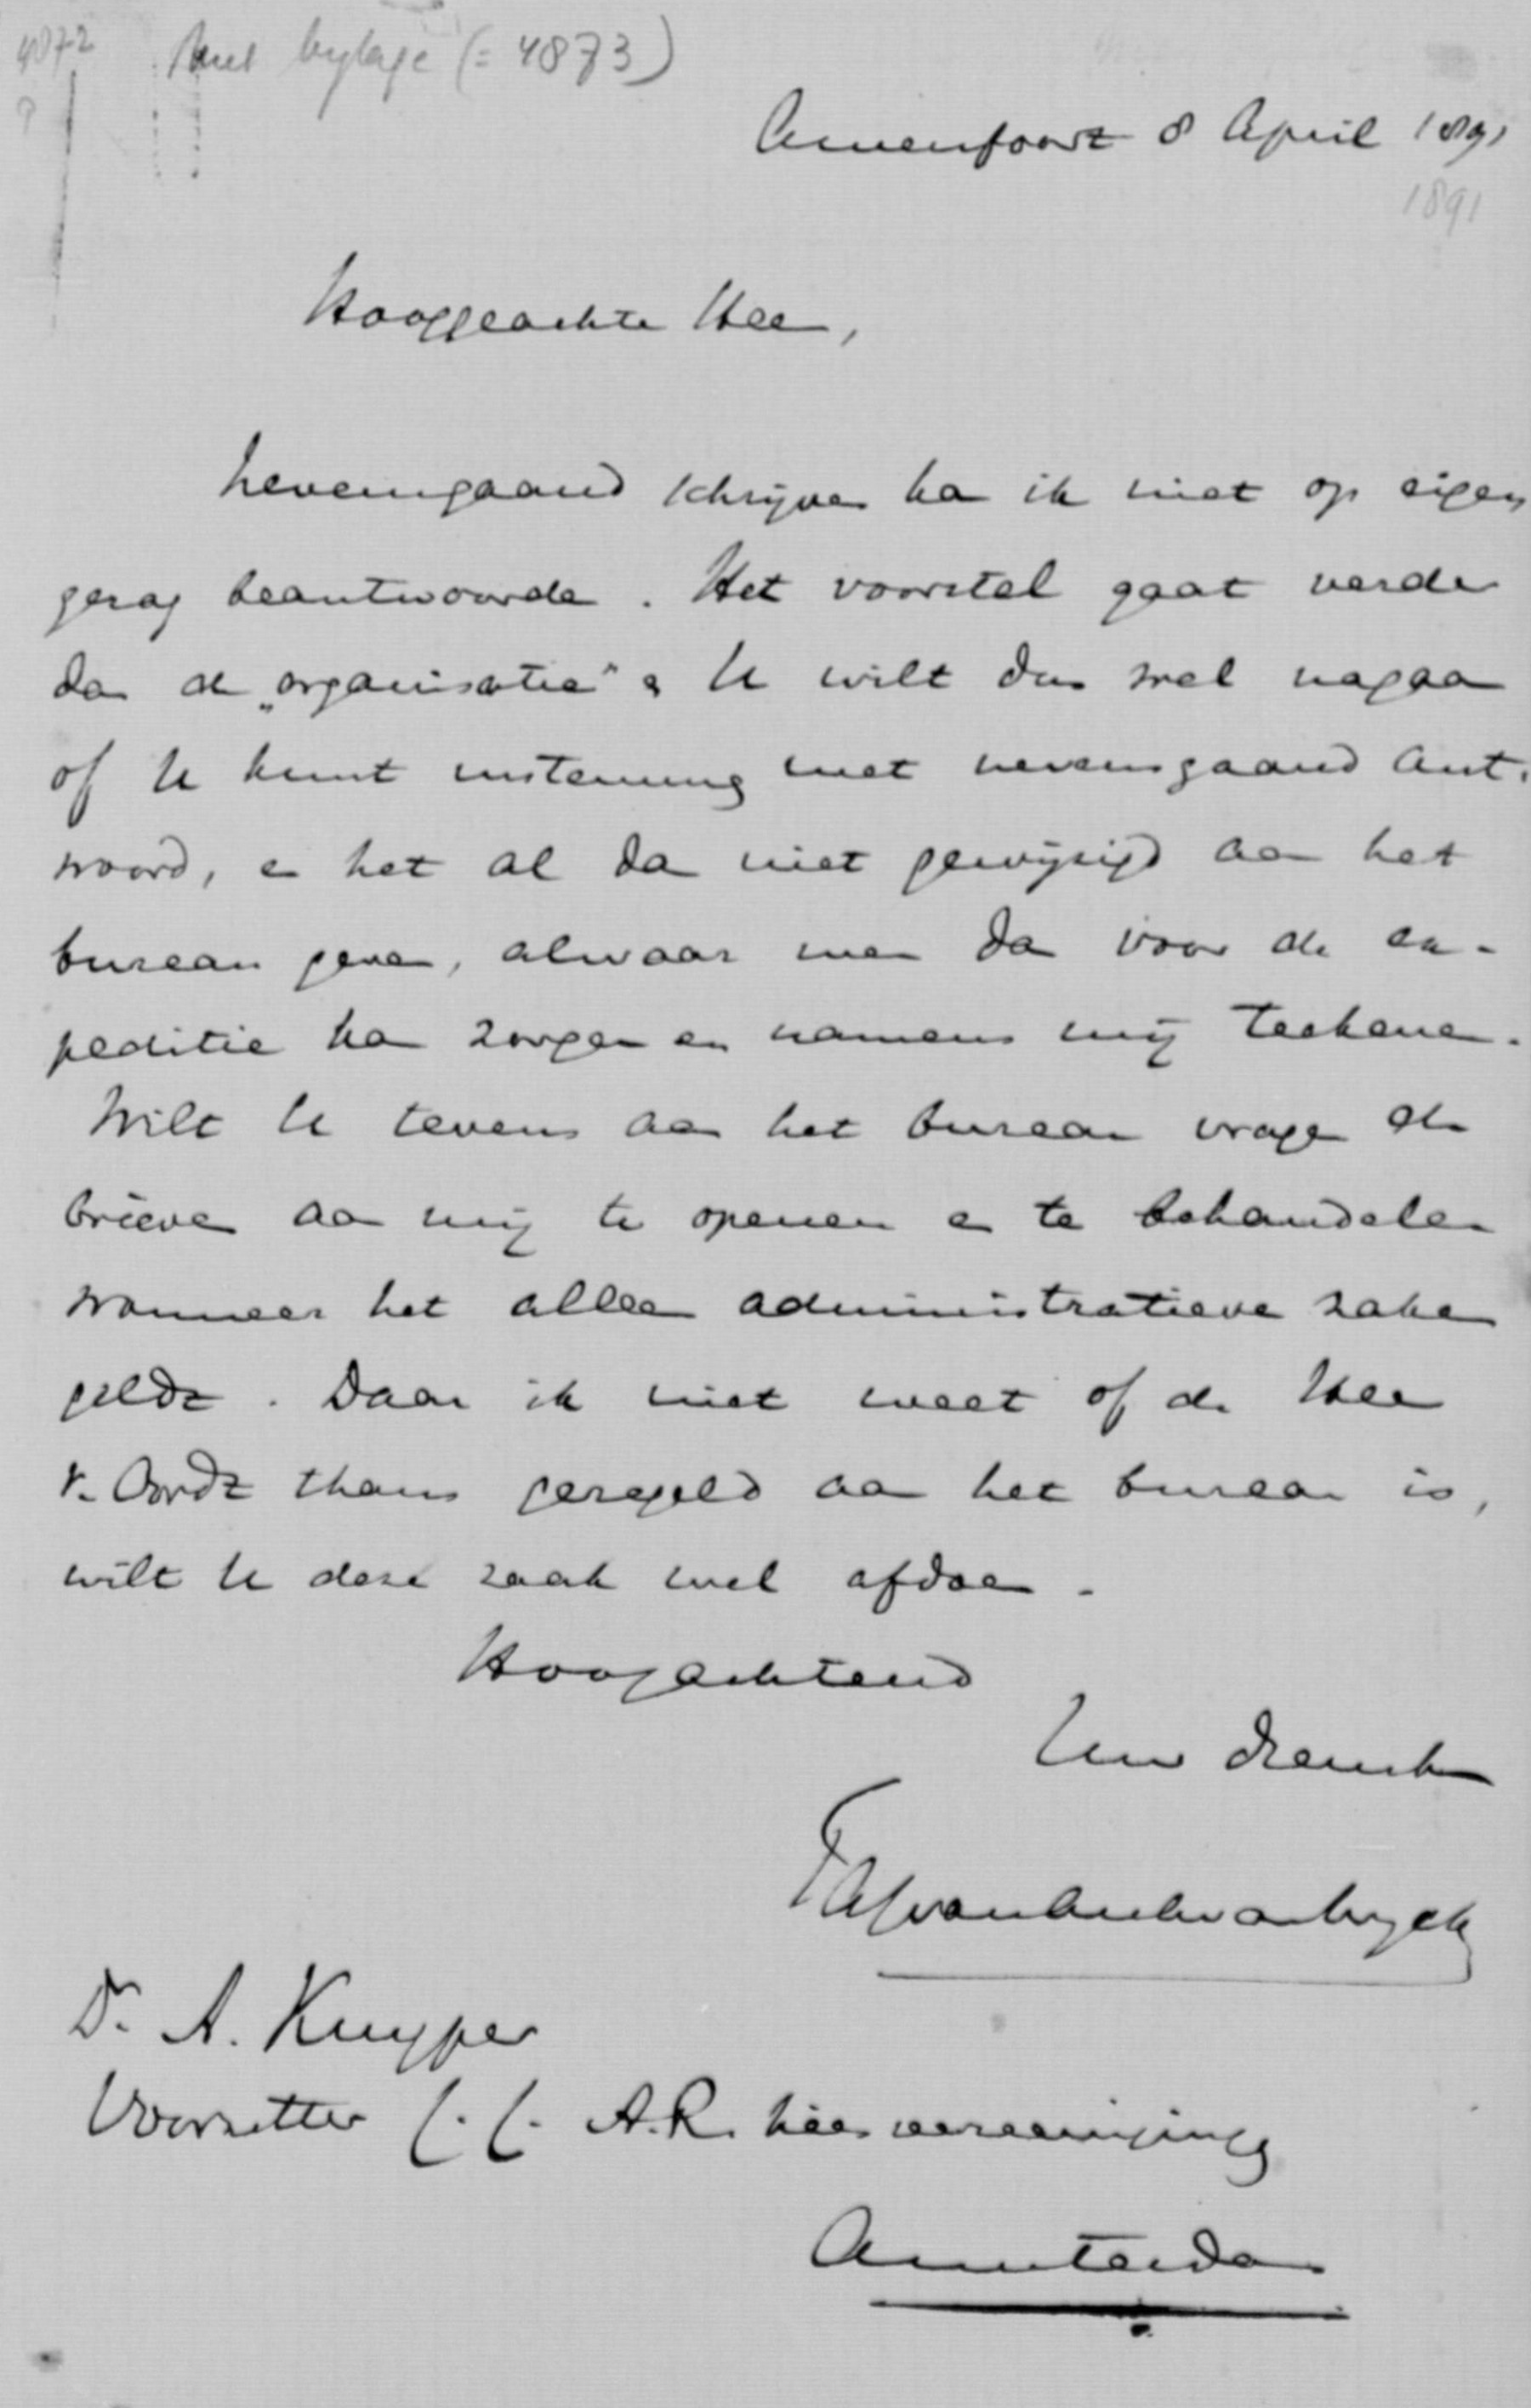 4872
Met bijlage (= 4873)
Amersfoort 8 April 1891
1891
Hooggeachte Heer,
Nevensgaand schrijven kan ik niet op eigen
gezag beantwoorden. Het voorstel gaat verder
dan de „organisatie" & U wilt dus wel nagaan
of U kunt instemmen met nevensgaand ant-
woord, en het al dan niet gewijzigd aan het
bureau geven, alwaar men dan voor de ex-
peditie kan zorgen en namens mij teekenen.
Wilt U tevens aan het bureau vragen de
brieven aan mij te openen en te behandelen
wanneer het alleen administratieve zaken
geldt. Daar ik niet weet of de Heer
v. Oordt thans geregeld aan het bureau is,
wilt U deze zaak wel afdoen.
Hoogachtend
Uw dienstv
Dr. A. Kuyper
Voorzitter C. C. A.R. Kiesvereenigingen
Amsterdam